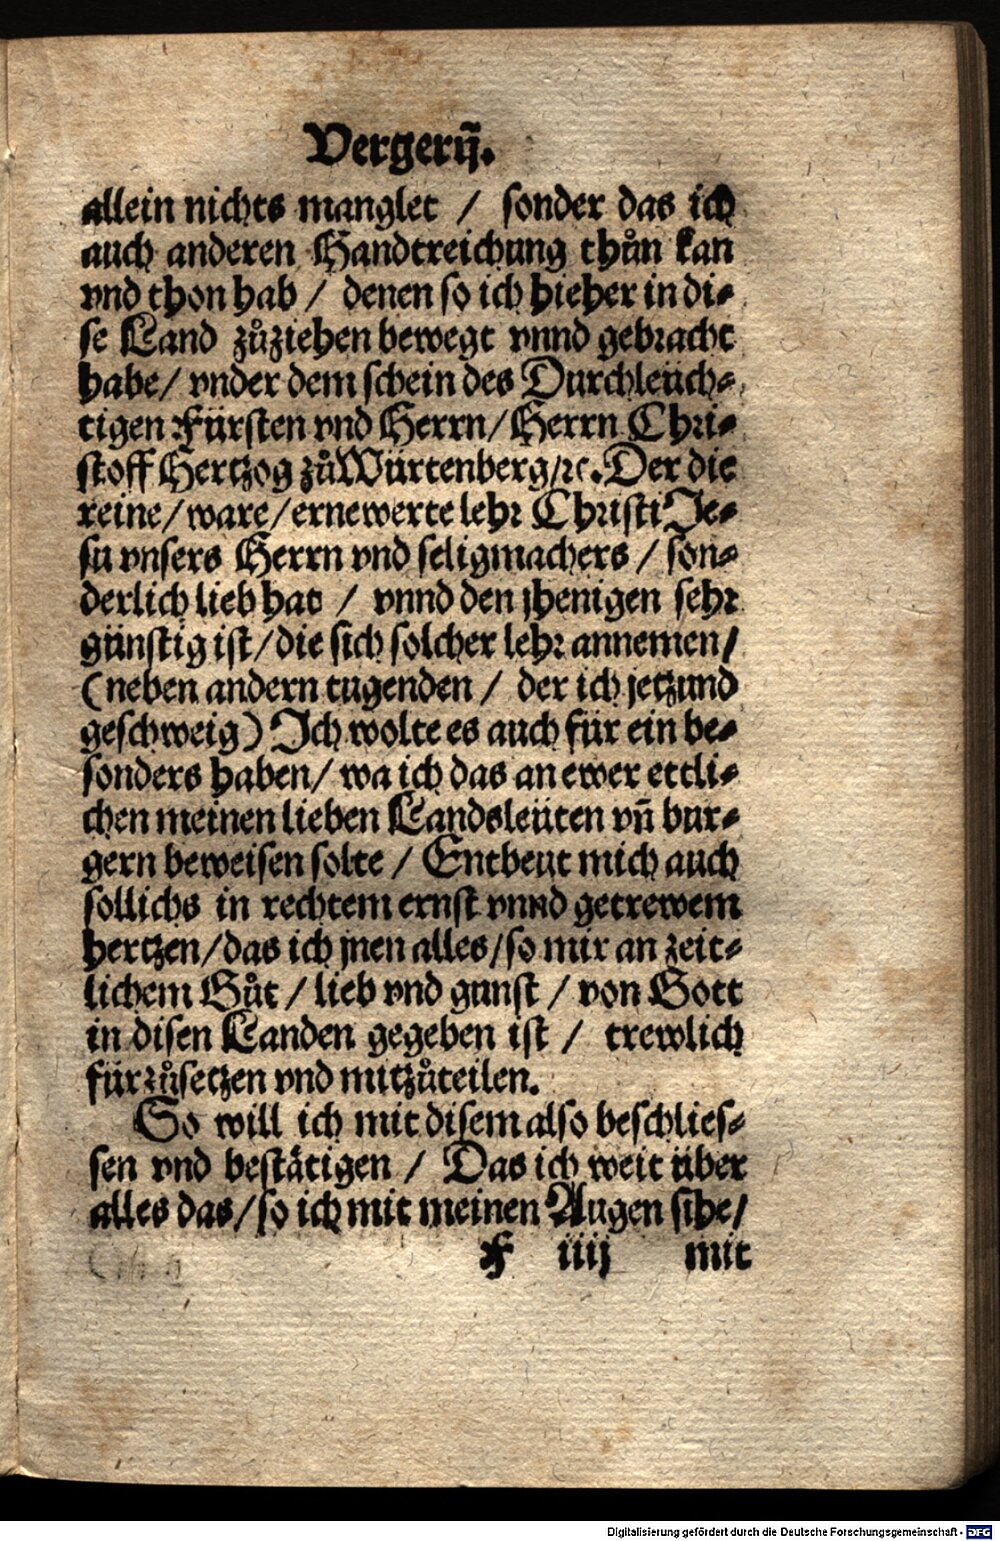 Vergerij̃.
allein nichts manglet / sonder das ich
auch anderen Handtreichung thůn kan
vnd thon hab / denen so ich hieher in di⸗
se Land zůziehen bewegt vnnd gebracht
habe / vnder dem schein des Durchleüch⸗
tigen Fürsten vnd Herrn / Herrn Chri⸗
stoff Hertzog zů Würtenberg / ꝛc. Der die
reine / ware / ernewerte lehr Christi Je⸗
su vnsers Herrn vnd seligmachers / son⸗
derlich lieb hat / vnnd den jhenigen sehr
günstig ist / die sich solcher lehr annemen /
(neben andern tugenden / der ich jetzund
geschweig) Ich wolte es auch für ein be⸗
sonders haben / wa ich das an ewer ettli⸗
chen meinen lieben Landsleüten vñ bur⸗
gern beweisen solte / Entbeut mich auch
sollichs in rechtem ernst vnnd getrewem
hertzen / das ich jnen alles / so mir an zeit⸗
lichem Gůt / lieb vnd gunst / von Gott
in disen Landen gegeben ist / trewlich
fürzůsetzen vnd mitzůteilen.
So will ich mit disem also beschlies⸗
sen vnd bestätigen / Das ich weit über
alles das / so ich mit meinen Augen sihe /
F iiij mit
Digitalisierung gefördert durch die Deutsche Forschungsgemeinschaft - DFG